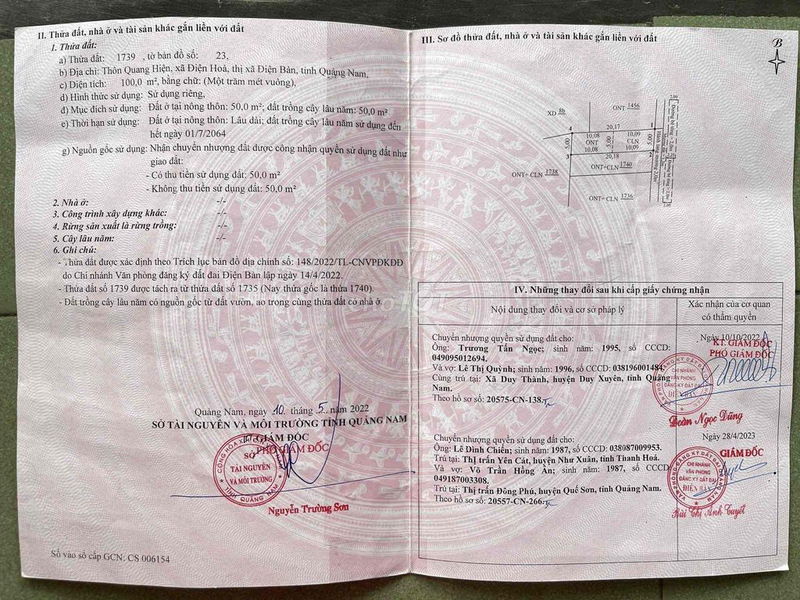 II. Thửa đất, nhà ở và tài sản khác gắn liền với đất
1. Thửa đất:
a) Thửa đất: 1739, tờ bản đồ số: 23,
b) Địa chỉ: Thôn Quang Hiện, xã Điện Hoà, thị xã Điện Bàn, tỉnh Quảng Nam,
c) Diện tích: 100,0 m², bằng chữ: (Một trăm mét vuông),
d) Hình thức sử dụng: Sử dụng riêng,
đ) Mục đích sử dụng: Đất ở tại nông thôn: 50,0 m²; đất trồng cây lâu năm: 50,0 m²
e) Thời hạn sử dụng: Đất ở tại nông thôn: Lâu dài; đất trồng cây lâu năm sử dụng đến
hết ngày 01/7/2064
g) Nguồn gốc sử dụng: Nhận chuyển nhượng đất được công nhận quyền sử dụng đất như
giao đất:
- Có thu tiền sử dụng đất: 50,0 m²
- Không thu tiền sử dụng đất: 50,0 m²
2. Nhà ở: -/-
3. Công trình xây dựng khác: -/-
4. Rừng sản xuất là rừng trồng: -/-
5. Cây lâu năm: -/-
6. Ghi chú:
- Thửa đất được xác định theo Trích lục bản đồ địa chính số: 148/2022/TL-CNVPĐKĐĐ
do Chi nhánh Văn phòng đăng ký đất đai Điện Bàn lập ngày 14/4/2022.
- Thửa đất số 1739 được tách ra từ thửa đất số 1735 (Nay thửa gốc là thửa 1740).
- Đất trồng cây lâu năm có nguồn gốc từ đất vườn, ao trong cùng thửa đất có nhà ở.
Quảng Nam, ngày 10 tháng 5 năm 2022
SỞ TÀI NGUYÊN VÀ MÔI TRƯỜNG TỈNH QUẢNG NAM
GIÁM ĐỐC
PHÓ GIÁM ĐỐC
SỞ
TÀI NGUYÊN
VÀ MÔI TRƯỜNG
TỈNH QUẢNG NAM
Nguyễn Trường Sơn
Số vào sổ cấp GCN: CS 006154
III. Sơ đồ thửa đất, nhà ở và tài sản khác gắn liền với đất
B
ONT 1456
XD 8b
20,17
10,08
10,09
ONT
CLN
5,00
5,00
5,00
10,08
10,09
20,18
ONT+CLN 1740
ONT+CLN 1738
ONT+CLN 1736
IV. Những thay đổi sau khi cấp giấy chứng nhận
Nội dung thay đổi và cơ sở pháp lý
Xác nhận của cơ quan
có thẩm quyền
Chuyển nhượng quyền sử dụng đất cho:
Ông: Trương Tấn Ngọc; sinh năm: 1995, số CCCD:
049095012694.
Và vợ: Lê Thị Quỳnh; sinh năm: 1996, số CCCD: 038196001484.
Cùng trú tại: Xã Duy Thành, huyện Duy Xuyên, tỉnh Quảng
Nam.
Theo hồ sơ số: 20575-CN-138.
Ngày 10/10/2022
KT. GIÁM ĐỐC
PHÓ GIÁM ĐỐC
CHI NHÁNH
VĂN PHÒNG
ĐĂNG KÝ ĐẤT ĐAI
ĐIỆN BÀN
Đoàn Ngọc Dũng
Chuyển nhượng quyền sử dụng đất cho:
Ông: Lê Đình Chiến; sinh năm: 1987, số CCCD: 038087009953.
Trú tại: Thị trấn Yên Cát, huyện Như Xuân, tỉnh Thanh Hoá.
Và vợ: Võ Trần Hồng Ân; sinh năm: 1987, số CCCD:
049187003308.
Trú tại: Thị trấn Đông Phú, huyện Quế Sơn, tỉnh Quảng Nam.
Theo hồ sơ số: 20557-CN-266.
Ngày 28/4/2023
GIÁM ĐỐC
CHI NHÁNH
VĂN PHÒNG
ĐĂNG KÝ ĐẤT ĐAI
ĐIỆN BÀN
Bùi Thị Ánh Tuyết